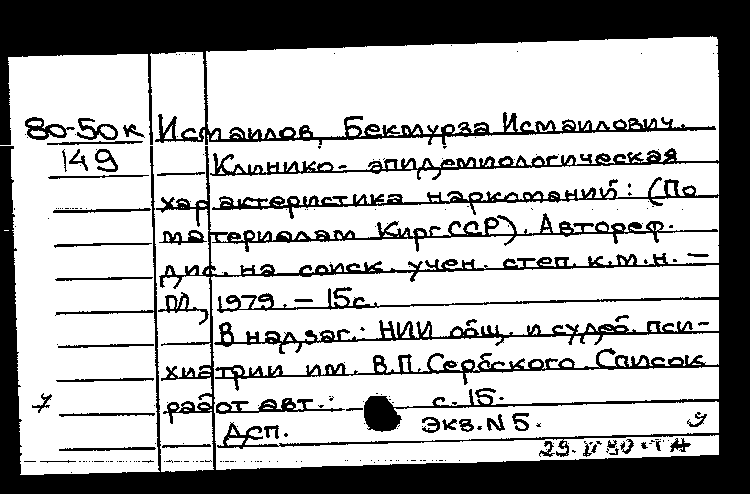 80-50к Исмаилов, Бекмурза Исмаилович.
149 Клинико-эпидемиологическая
характеристика наркоманий: (По
материалам Кирг.ССР). Автореф.
дис. на соиск. учен. степ. к.м.н. –
М., 1979. – 15с.
В надзаг.: НИИ общ. и судеб. пси-
хиатрии им. В.П.Сербского. Список
работ авт.: с. 15.
Дсп. Экз.N 5.